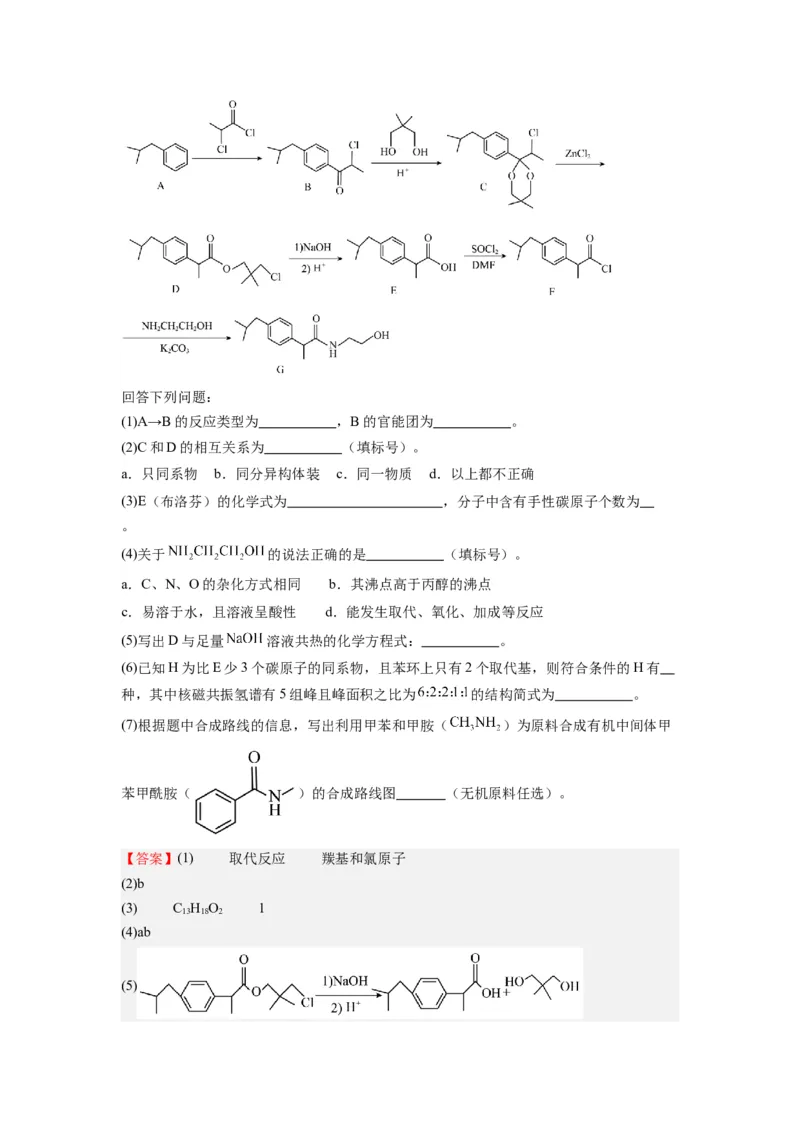 O
Cl
Cl
A
Cl
O
B
HO OH
H⁺
Cl
O O
C
ZnCl₂
O
O
Cl
D
1)NaOH
2) H⁺
O
OH
E
SOCl₂
DMF
O
Cl
F
NH₂CH₂CH₂OH
K₂CO₃
O
N
H
OH
G
回答下列问题：
(1)A→B的反应类型为__________，B的官能团为__________。
(2)C和D的相互关系为__________（填标号）。
a．只同系物 b．同分异构体装 c．同一物质 d．以上都不正确
(3)E（布洛芬）的化学式为____________________，分子中含有手性碳原子个数为__
。
(4)关于NH₂CH₂CH₂OH的说法正确的是__________（填标号）。
a．C、N、O的杂化方式相同 b．其沸点高于丙醇的沸点
c．易溶于水，且溶液呈酸性 d．能发生取代、氧化、加成等反应
(5)写出D与足量NaOH溶液共热的化学方程式：__________。
(6)已知H为比E少3个碳原子的同系物，且苯环上只有2个取代基，则符合条件的H有__
种，其中核磁共振氢谱有5组峰且峰面积之比为6:2:2:1:1的结构简式为__________。
(7)根据题中合成路线的信息，写出利用甲苯和甲胺（CH₃NH₂）为原料合成有机中间体甲
O
苯甲酰胺（ N
H ）的合成路线图______（无机原料任选）。
【答案】(1) 取代反应 羰基和氯原子
(2)b
(3) C₁₃H₁₈O₂ 1
(4)ab
(5) O
O
Cl
1)NaOH
2) H⁺
O
OH + HO OH